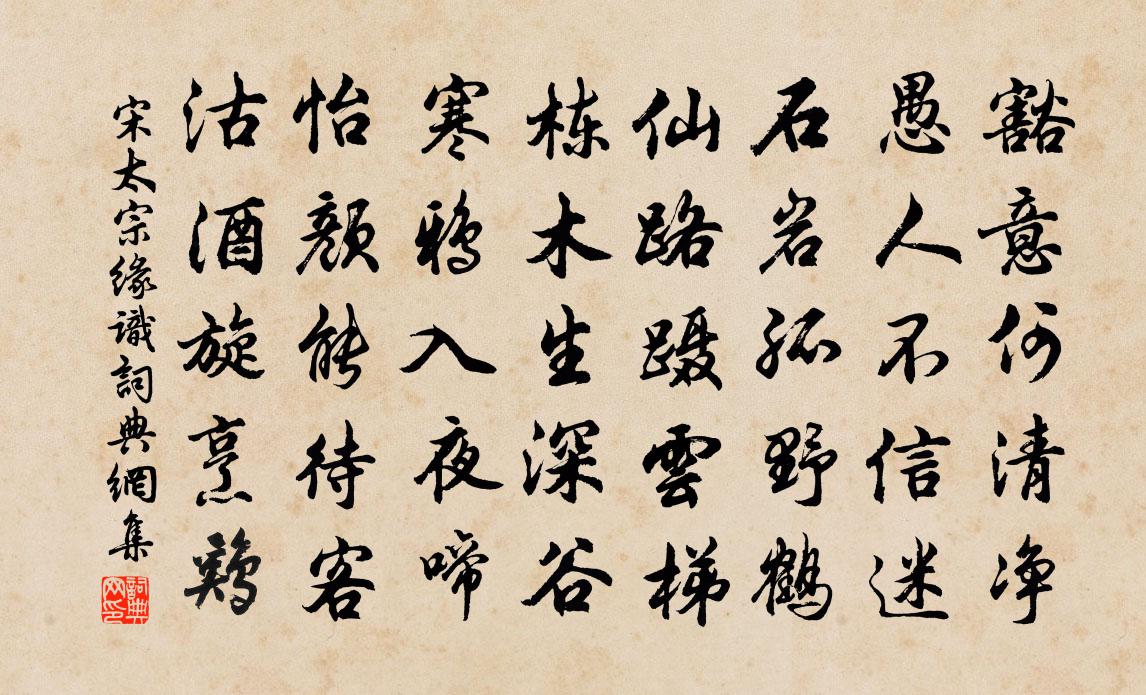 豁意何清净
愚人不信迷
石岩孤野鹤
仙路蹑雲梯
栋木生深谷
寒鸦入夜啼
怡颜能待客
沽酒旋烹鸡
宋太宗缘識詞典網集
詞典網印